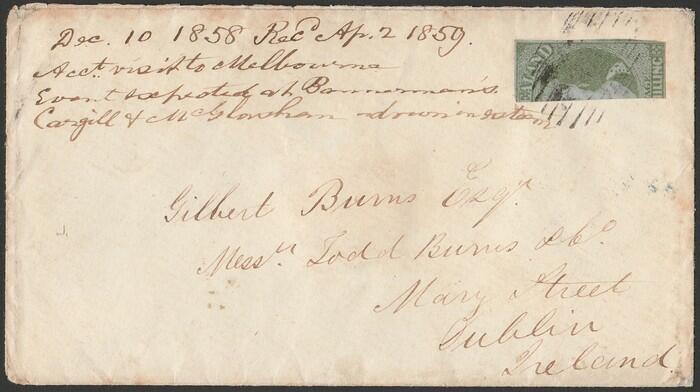 Dec. 10 1858 Recd Ap. 2 1859.
Acct. visit to Melbourne
Event expected at Bannerman's.
Cargill & McGlonshan drown in return
ALAND
LLING
Gilbert Burns Esqr.
Messrs Todd Burns & Co.
Mary Street
Dublin
Ireland.